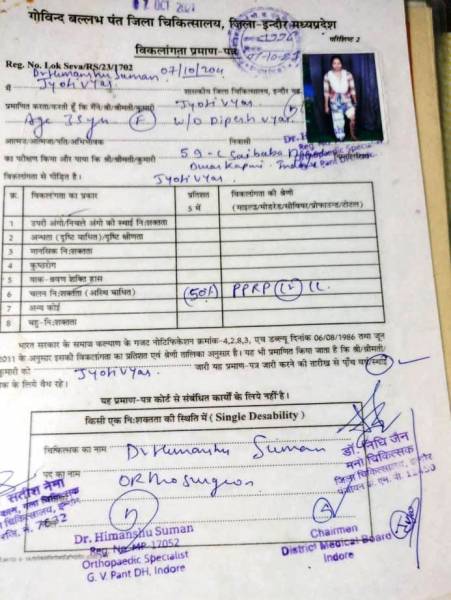 17 OCT 2024
गोविन्द बल्लभ पंत जिला चिकित्सालय, जिला-इन्दौर मध्यप्रदेश
परिशिष्ट 2
विकलांगता प्रमाण-पत्र
Reg. No. Lok Seva/RS/23/1702
Dr Himanshu Suman 07/10/204
में Jyoti Vyas शासकीय जिला चिकित्सालय, इन्दौर
प्रमाणित करता/करती हूँ कि मैंने श्री/श्रीमती/कुमारी Jyoti Vyas
Age 35yr F W/O Dipesh Vyas
आत्मज/आत्मजा/पति/अभिभावक निवासी
59-C Saibaba
का परीक्षण किया और पाया कि श्री/श्रीमती/कुमारी Dwarkapuri Indore
विकलांगता से पीड़ित है। Jyoti Vyas
क्र. विकलांगता का प्रकार प्रतिशत 5 में विकलांगता की श्रेणी
(माइल्ड/मोडरेड/सीवियर/प्रोफाउन्ड/टोटल)
1 उपरी अंगो/निचले अंगो की स्थाई नि:शक्तता
2 अन्धता (दृष्टि बाधित)/दृष्टि क्षीणता
3 मानसिक नि:शक्तता
4 कुष्ठरोग
5 वाक-श्रवण शक्ति हास
6 चलन नि:शक्तता (अस्थि बाधित) (50%) PPRP
7 अन्य कोई
8 बहु-नि:शक्तता
भारत सरकार के समाज कल्याण के गजट नोटिफिकेशन क्रमांक-4,2,8,3, एच डब्ल्यू दिनांक 06/08/1986 तथा जून
2011 के अनुसार इसकी विकलांगता का प्रतिशत एवं श्रेणी तालिका अनुसार है। यह भी प्रमाणित किया जाता है कि श्री/श्रीमती/
कुमारी को Jyoti Vyas जारी यह प्रमाण-पत्र जारी करने की तारीख से पाँच वर्ष/स्थाई
तक के लिये वैध रहे।
यह प्रमाण-पत्र कोर्ट से संबंधित कार्यों के लिये नहीं है।
किसी एक नि:शक्तता की स्थिति में ( Single Desability )
चिकित्सक का नाम Dr Himanshu Suman
पद का नाम Orthosurgeon
डॉ. निधि जैन
मनो चिकित्सक
जिला चिकित्सालय, इन्दौर
Dr. Himanshu Suman
Reg. No. MP-17052
Orthopaedic Specialist
G. V. Pant DH, Indore
Chairmen
District Medical Board
Indore